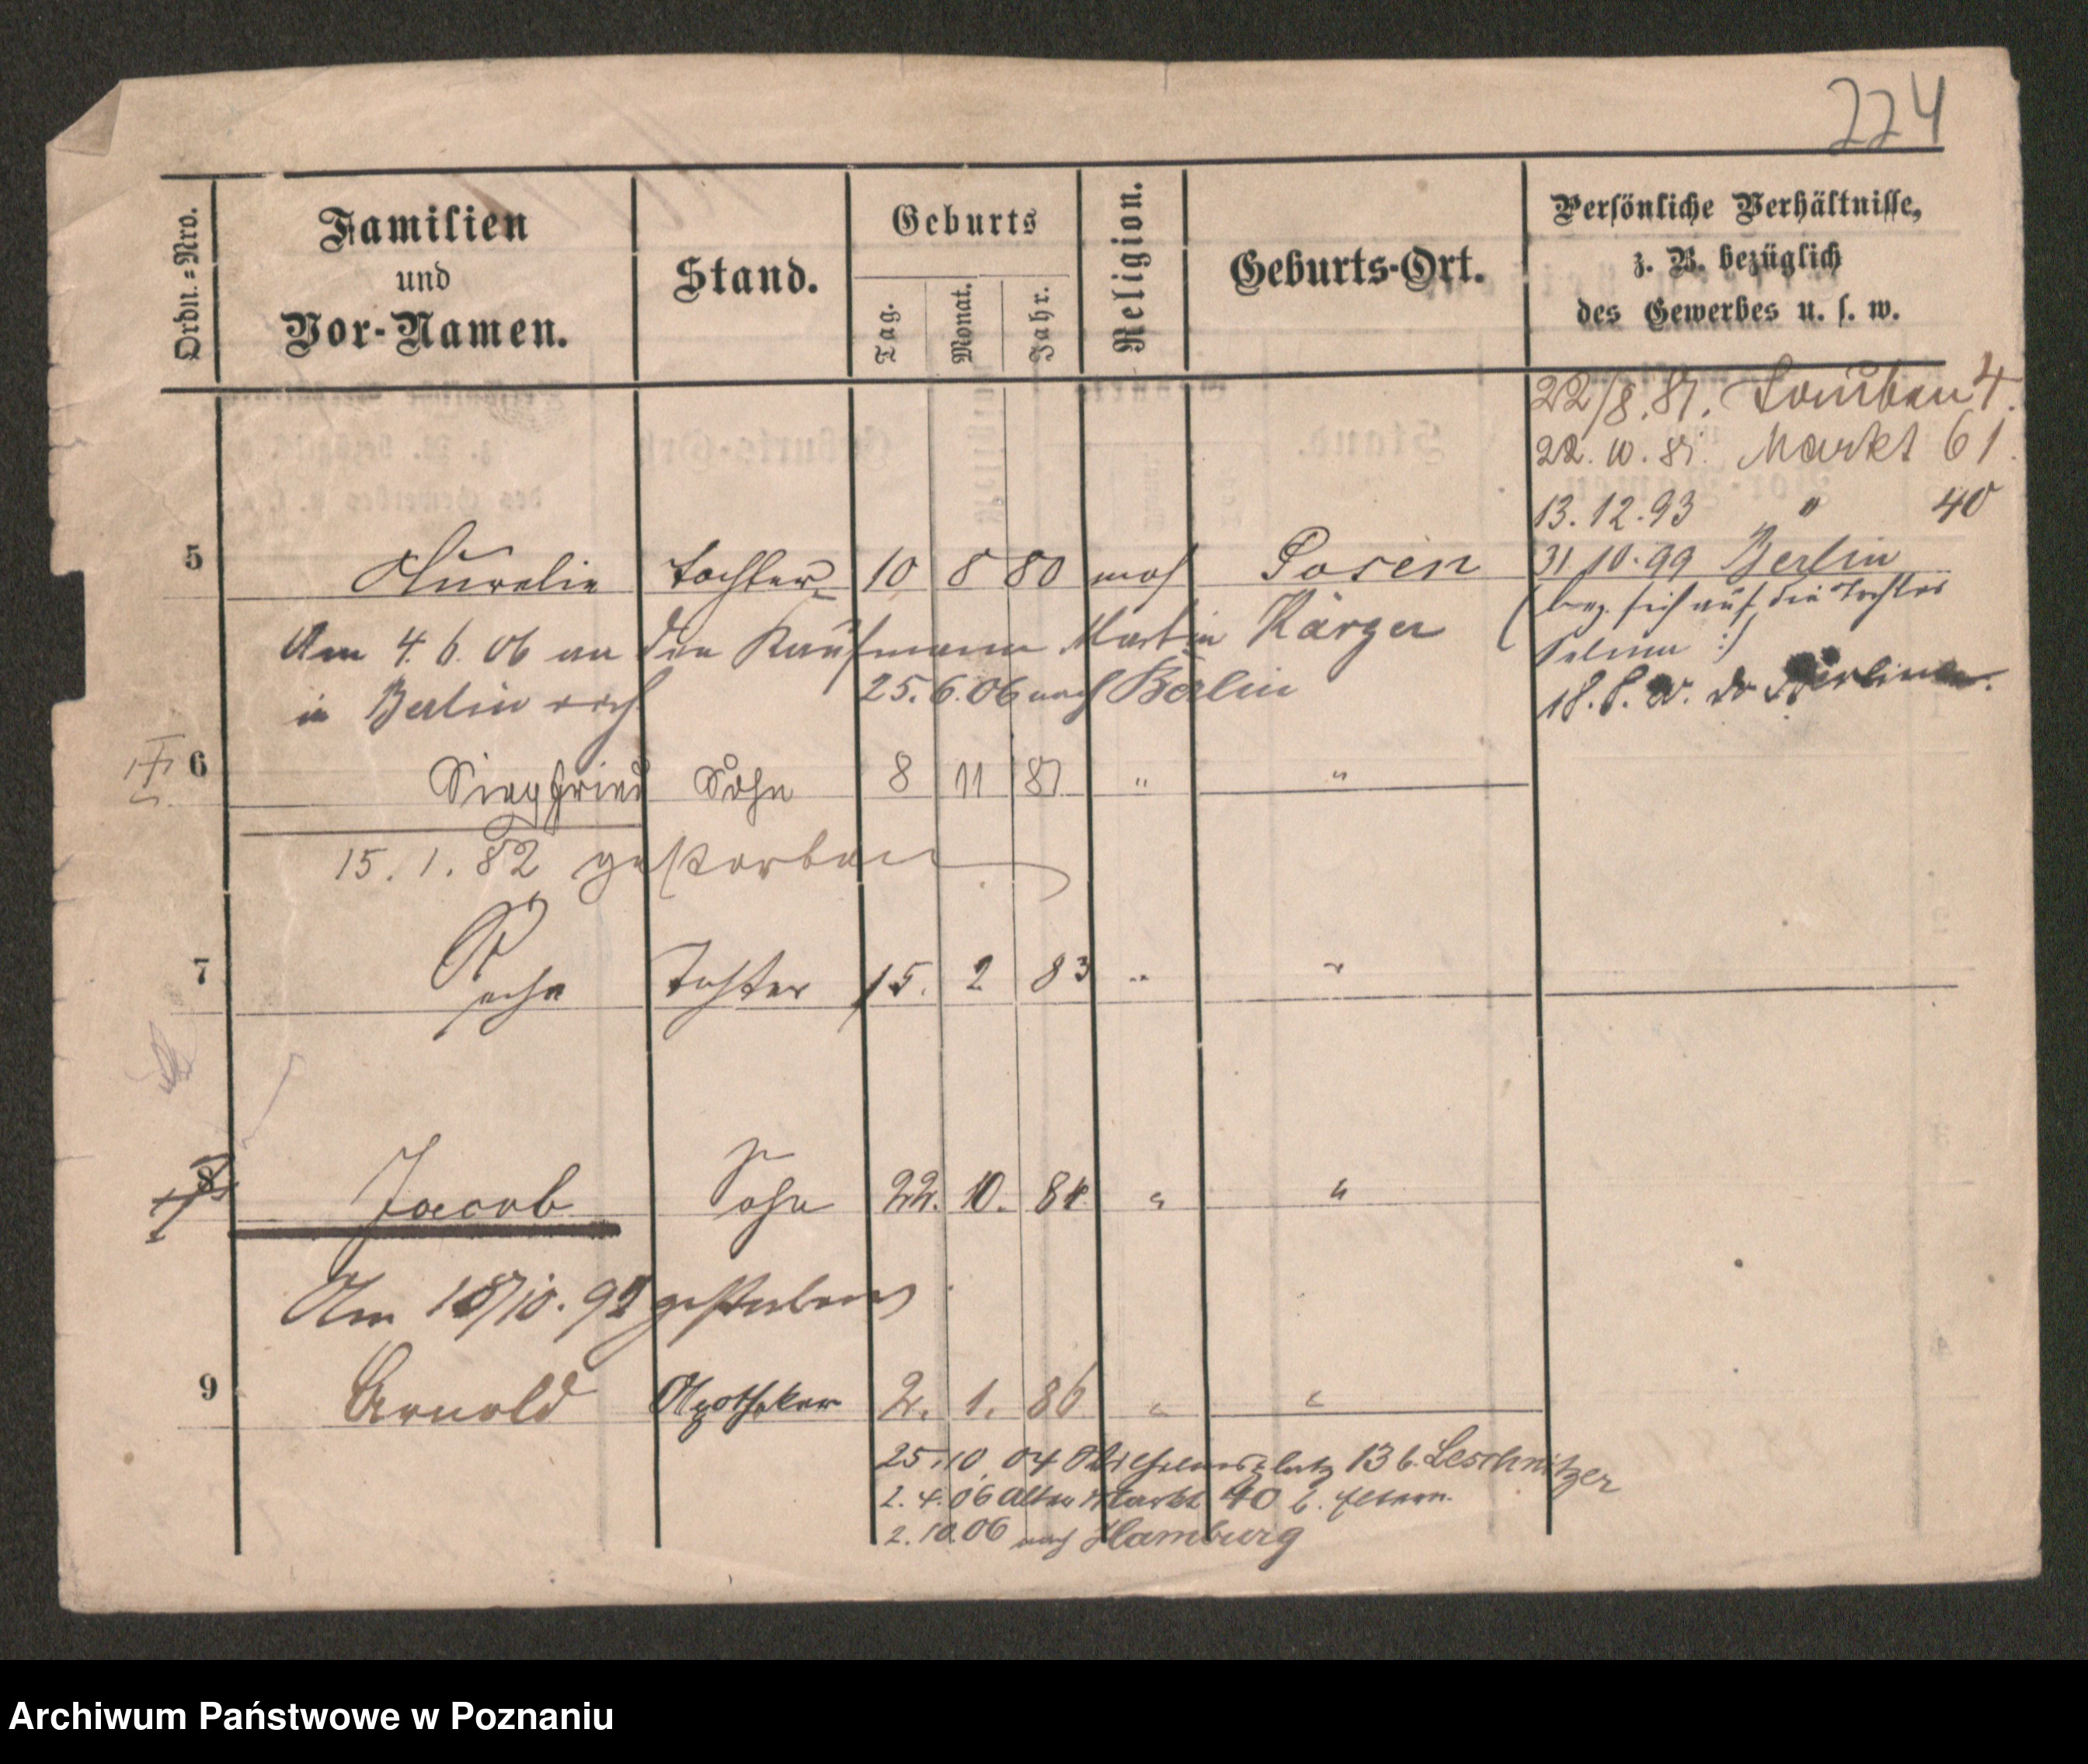 224
Ordn.=Nro.
Familien
und
Vor-Namen.
Stand.
Geburts
Tag.
Monat.
Jahr.
Religion.
Geburts-Ort.
Persönliche Verhältnisse,
z. B. bezüglich
des Gewerbes u. s. w.
22/8. 81. 4.
22. 10. 81. Markt 61.
13. 12. 93 " 40
31 10. 99 Berlin
(bez. sich auf die Tochter
Selma :)
18. 8. do Berlin
5 Aurelie Tochter 10 8 80 mos Posen
Am 4. 6. 06 an den Kaufmann Martin Kärger
in Berlin verh
25. 6. 06 nach Berlin
6 Siegfried Sohn 8 11 81 " "
15. 1. 82 gestorben
7 Tochter 15. 2 83 " "
8 Jacob Sohn 22. 10. 84 " "
Am 18/10. 92 gestorben
9 Arnold Apotheker 2. 1. 86 " "
25. 10. 04 Wilhelmsplatz 13 b. Leschnitzer
2. 4. 06 Alter Markt 40 b. Eltern.
2. 10. 06 nach Hamburg
Archiwum Państwowe w Poznaniu